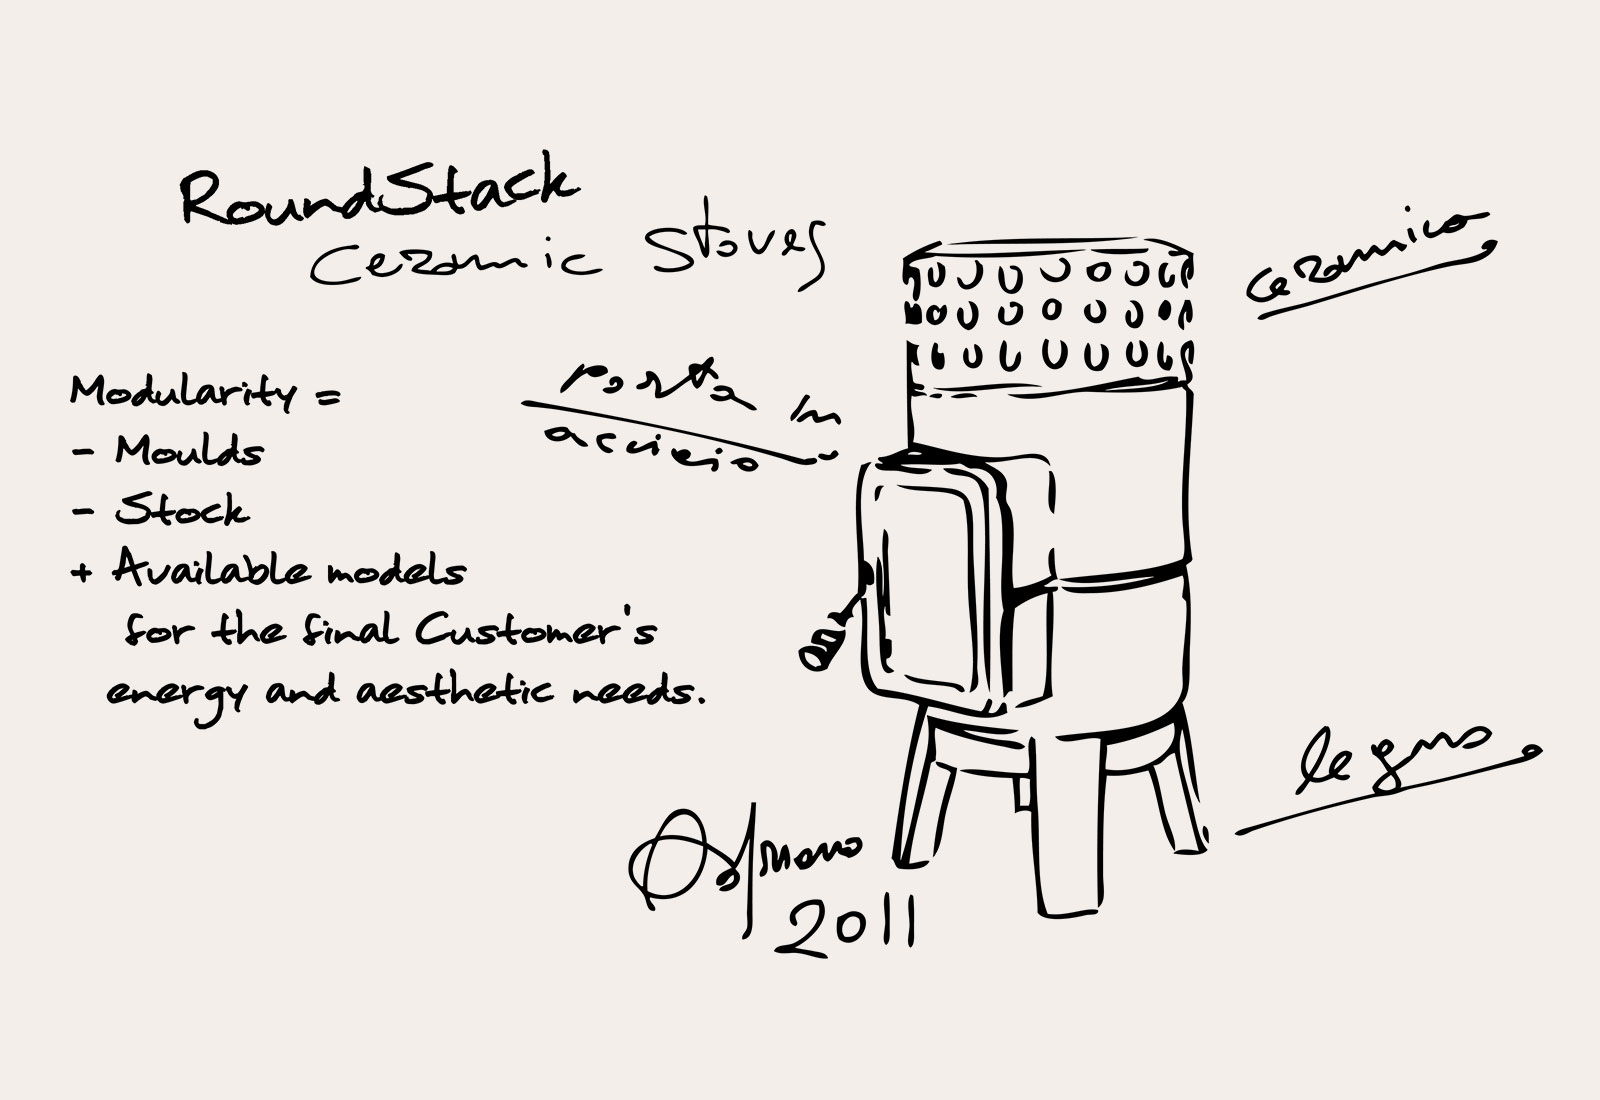 RoundStack
Ceramic Stoves
ceramica
porta in
acciaio
Modularity =
- Moulds
- Stock
+ Available models
for the final Customer's
energy and aesthetic needs.
legno
2011